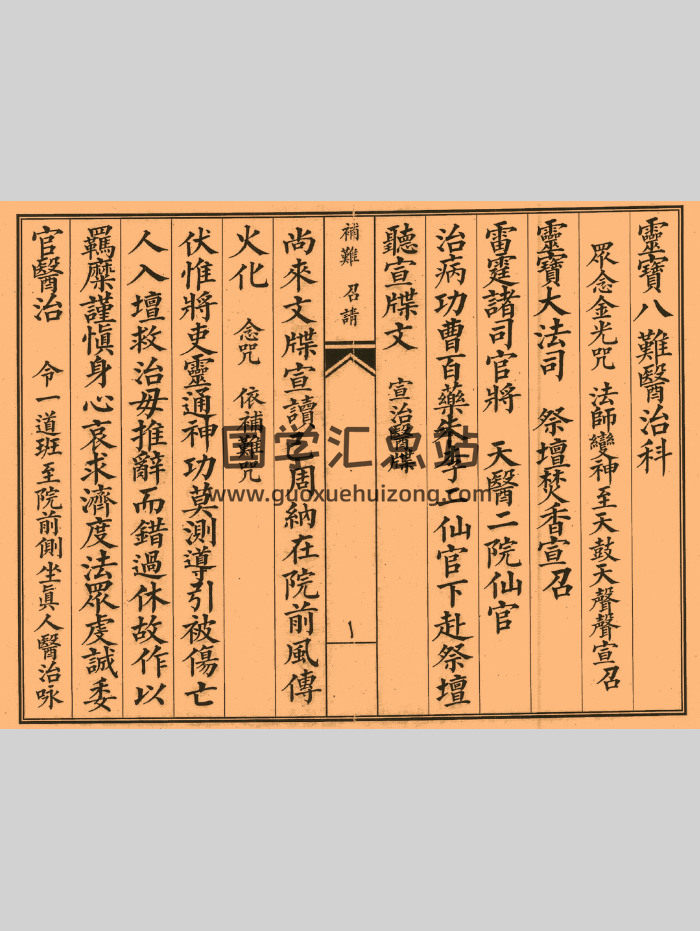 靈寶八難醫治科
眾念金光咒 法師變神至天鼓天聲聲宣召
靈寶大法司 祭壇焚香宣召
雷霆諸司官將 天醫二院仙官
治病功曹百藥朱二仙官下赴祭壇
聽宣牒文 宣治醫牒
補難 召請
一
尚來文牒宣讀已周納在院前風傳
火化 念咒 依補難咒
伏惟將吏靈通神功莫測導引被傷亡
人入壇救治毋推辭而錯過休故作以
羈縻謹慎身心哀求濟度法眾虔誠委
官醫治 令一道班至院前側坐眞人醫治咏
国学汇总站
www.guoxuehuizong.com